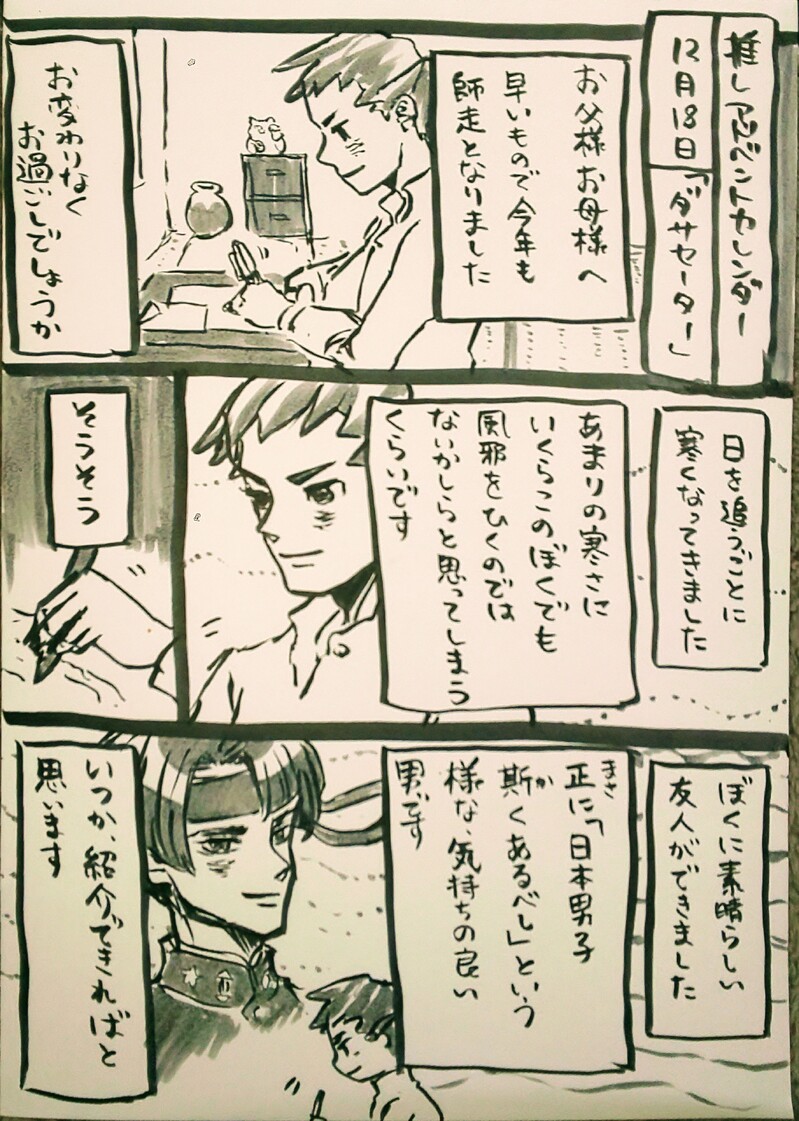 推しアドベントカレンダー
12月18日
「ダサセーター」
お父様お母様へ
早いもので今年も
師走となりました
お変わりなく
お過ごしでしょうか
日を追うごとに
寒くなってきました
あまりの寒さに
いくらこのぼくでも
風邪をひくのでは
ないかしらと思ってしまう
くらいです
そうそう
ぼくに素晴らしい
友人ができました
正に「日本男子
まさ
斯くあるべし」という
か
様な、気持ちの良い
男です
いつか、紹介できればと
思います